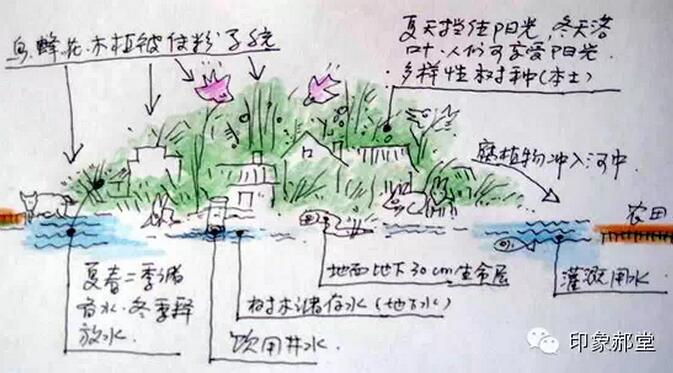 鸟.蜂.花.木植被传粉子系统
夏天挡住阳光,冬天落
叶.人们可享受阳光.
多样性树种(本土)
腐植物冲入河中
农田
夏春二季诸
音水.冬季释
放水.
地面地下30cm生命层
树木诸存水(地下水)
饮用井水.
灌溉用水
印象郝堂